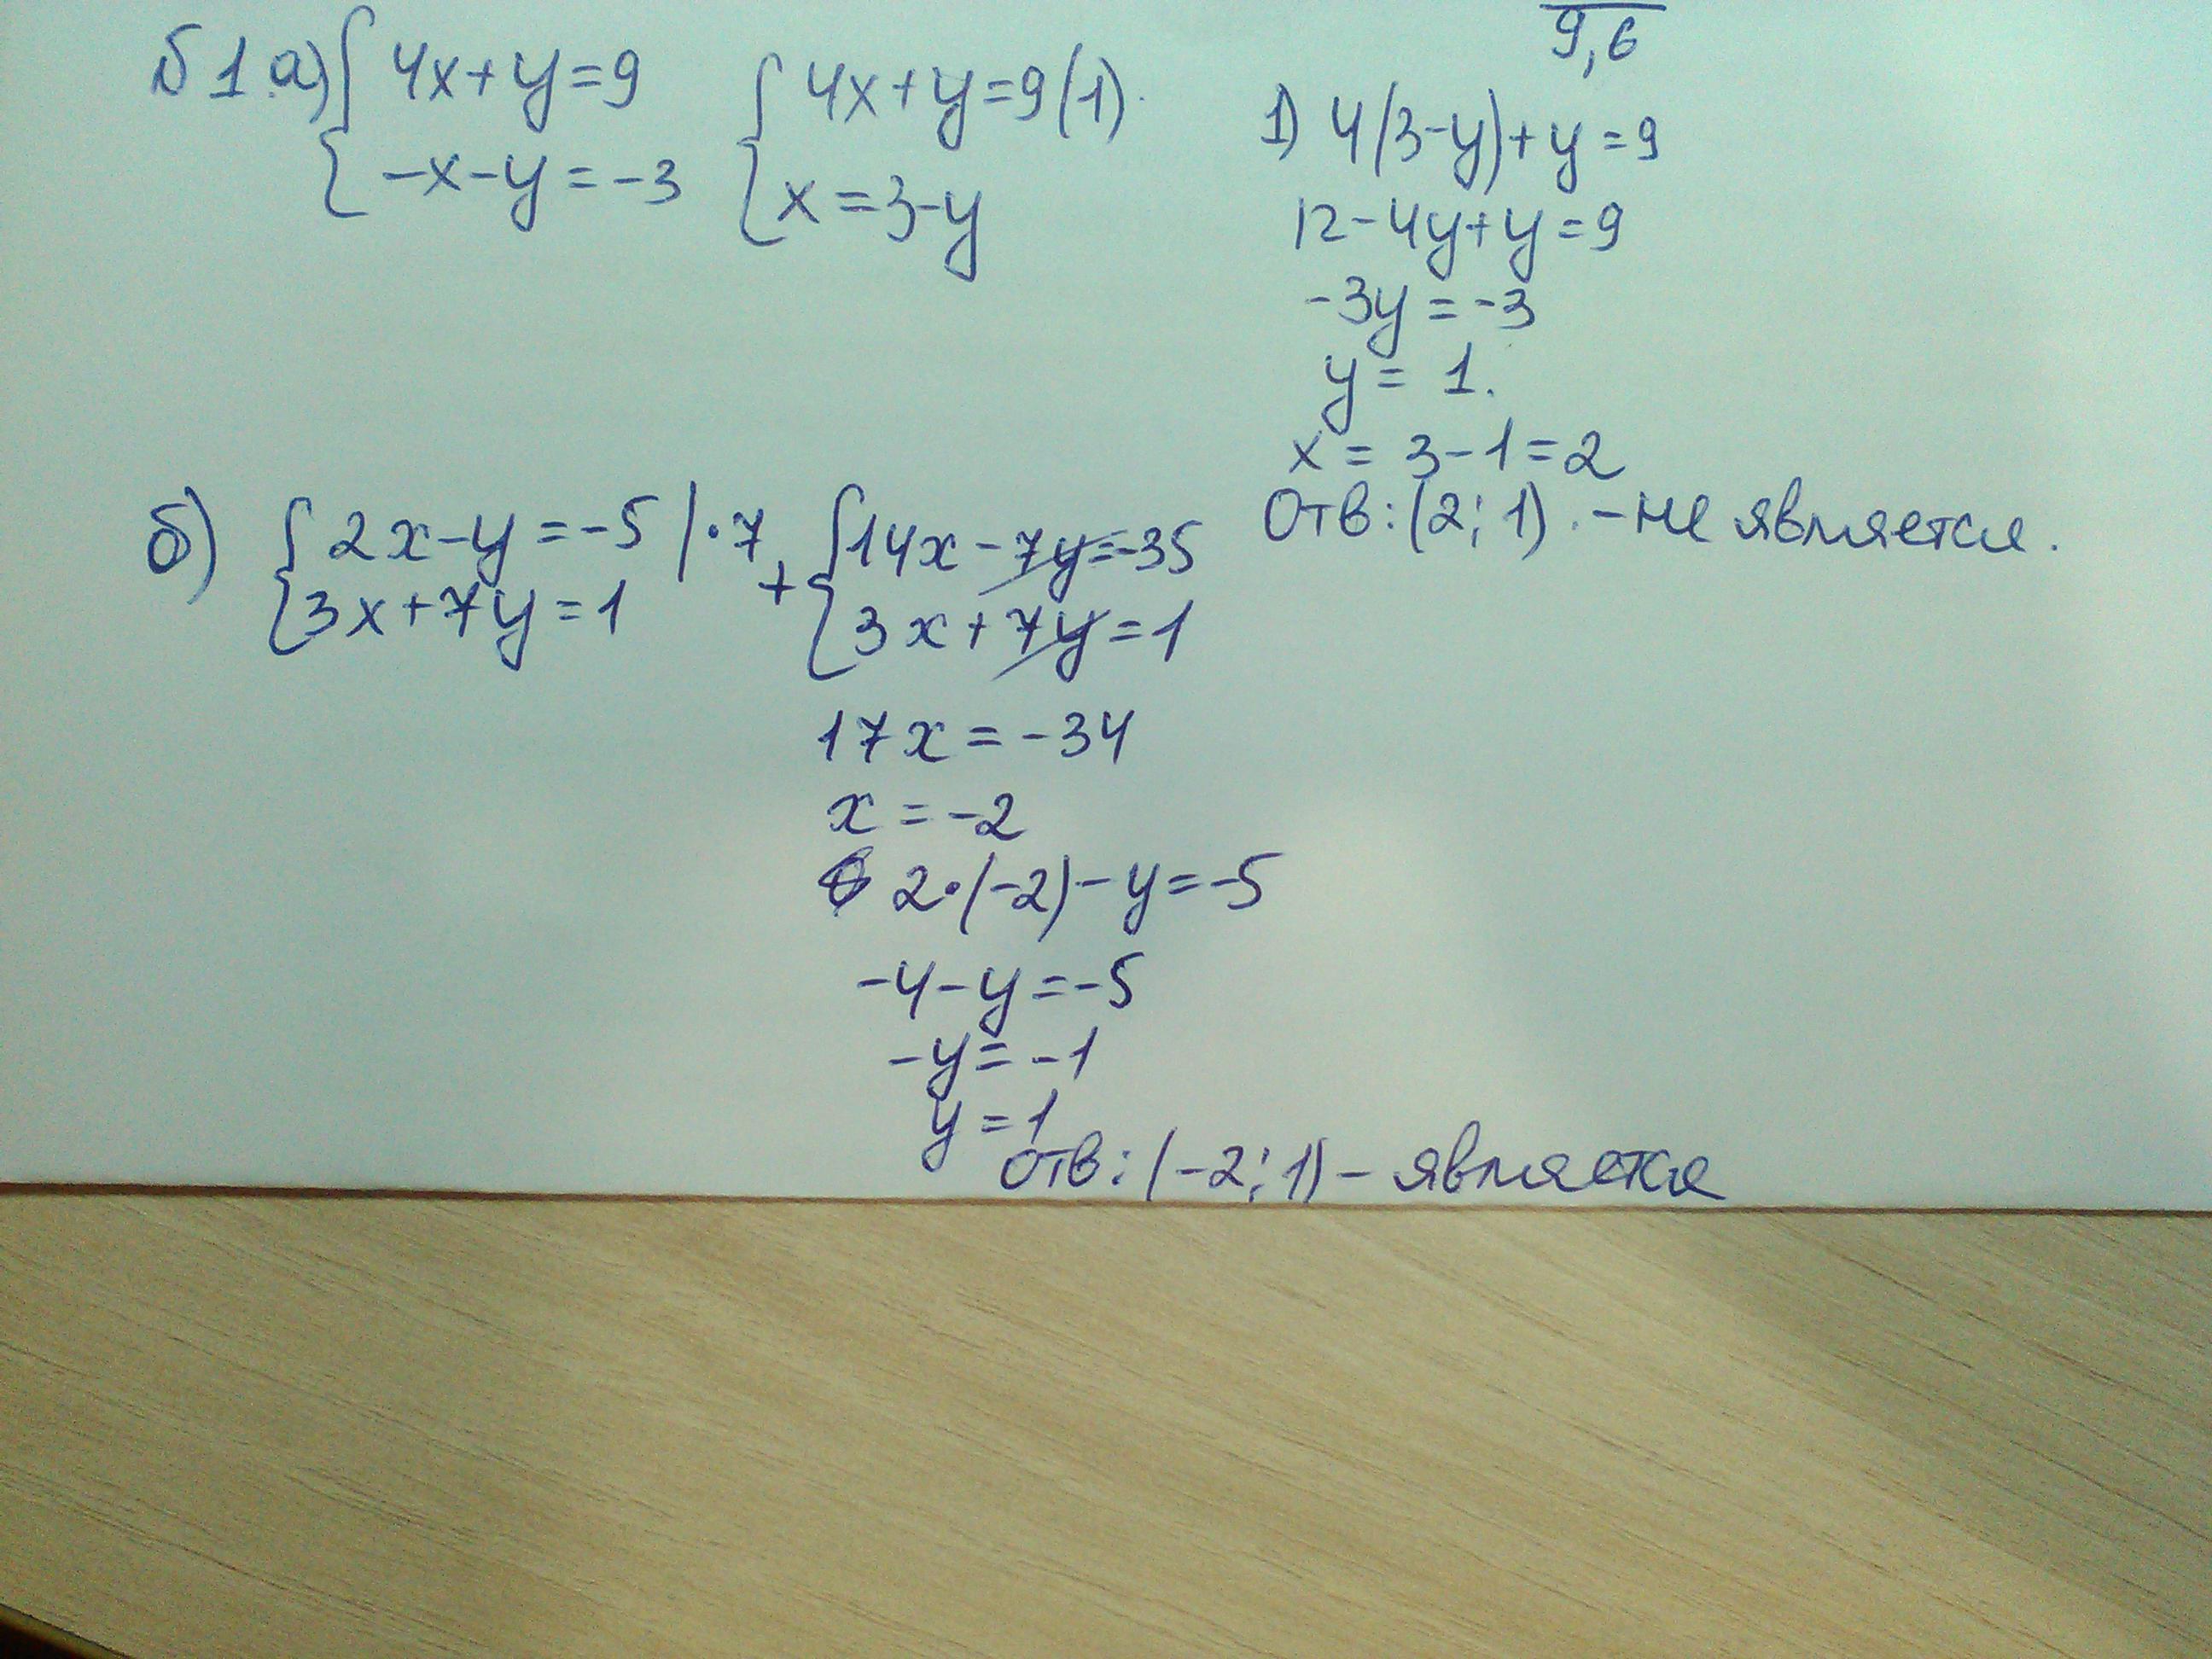 9,6
№1.а) { 4x+y=9
-x-y=-3
{ 4x+y=9(1).
x=3-y
1) 4(3-y)+y=9
12-4y+y=9
-3y=-3
y=1.
x=3-1=2
Отв: (2;1). - не является.
б) { 2x-y=-5 |·7
3x+7y=1
+ { 14x-7y=-35
3x+7y=1
17x=-34
x=-2
2·(-2)-y=-5
-4-y=-5
-y=-1
y=1
Отв: (-2;1) - является